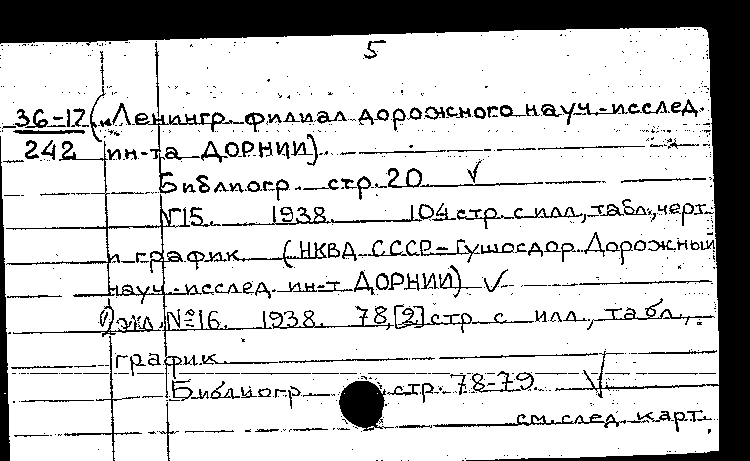 5
36-17 (и Ленингр. филиал дорожного науч.-исслед.
242 ин-та ДОРНИИ).
Библиогр. стр. 20. √
№15. 1938. 104 стр. с илл., табл., черт.
и график. (НКВД СССР - Гушосдор. Дорожный
науч.-исслед. ин-т ДОРНИИ) √
1) экл. №16. 1938. 78, [2] стр. с илл., табл.,
график.
Библиогр. стр. 78-79. √
см. след. карт.